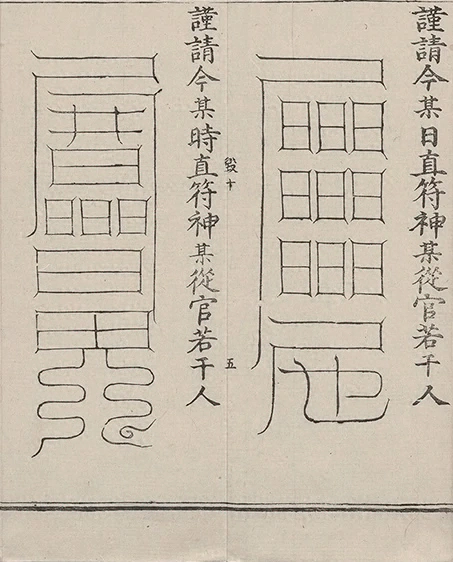 謹請今某日直符神某從官若干人
謹請今某時直符神某從官若干人
五